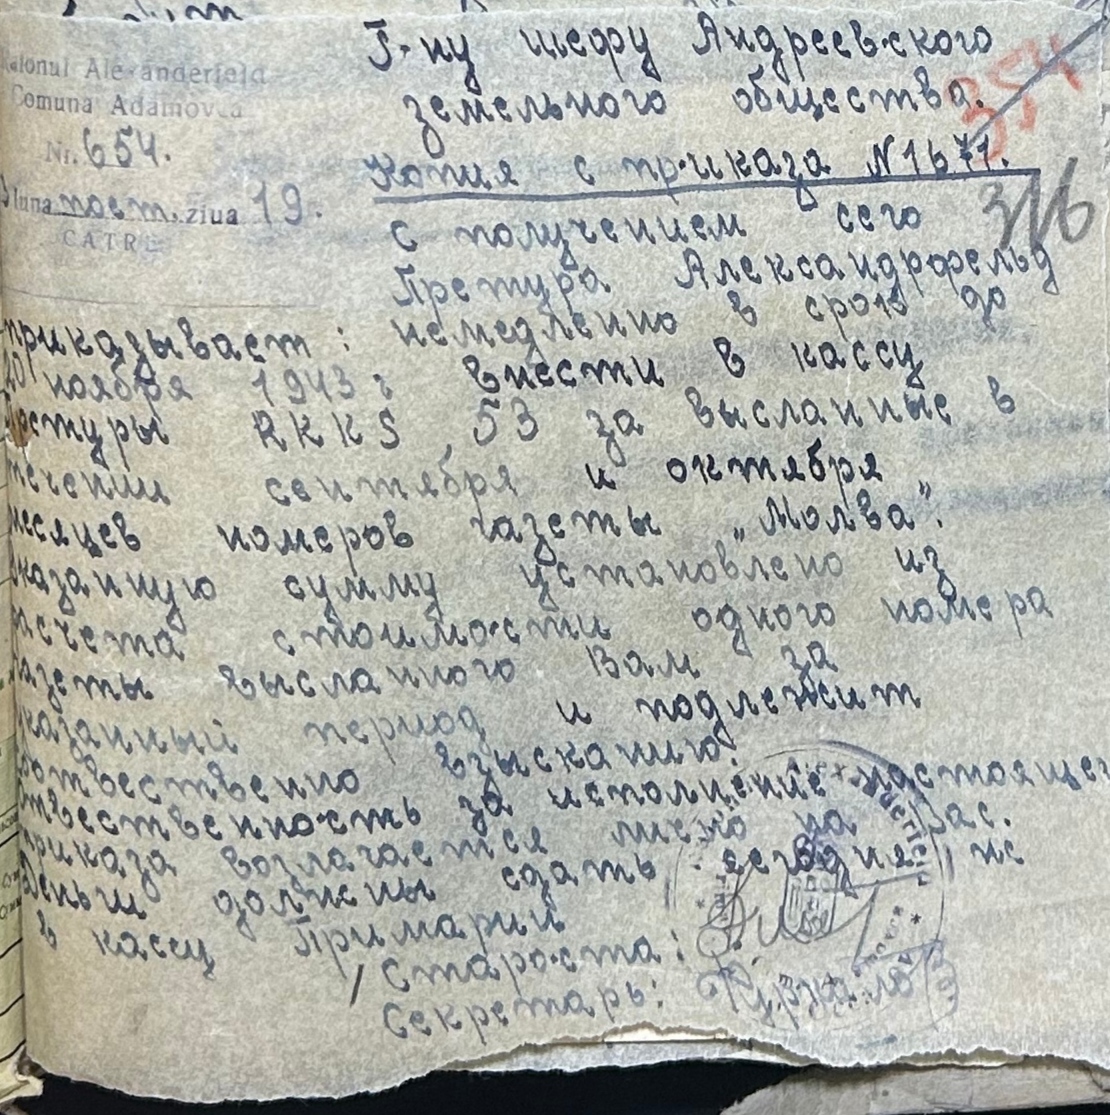 Raionul Alexanderfeld
Comuna Adamovca
Nr. 654.
luna noem. ziua 19.
CATRE
354
316
Г-ну шефу Андреевского
земельного общества.
Копия с приказа N 1671.
с получением сего
Претура Александрфельд
приказывает: немедленно в срок до
20/ ноября 1943 г внести в кассу
Претуры RKKS 53 за высланные в
течении сентября и октября
месяцев номеров газеты „Молва".
Указанную сумму установлено из
расчета стоимости одного номера
газеты высланного Вам за
указанный период и подлежит
взысканию.
ответственность за исполнение настоящего
приказа возлагается лично на Вас.
Деньги должны сдать сегодня не
в кассу Примарии
Староста:
Секретарь: